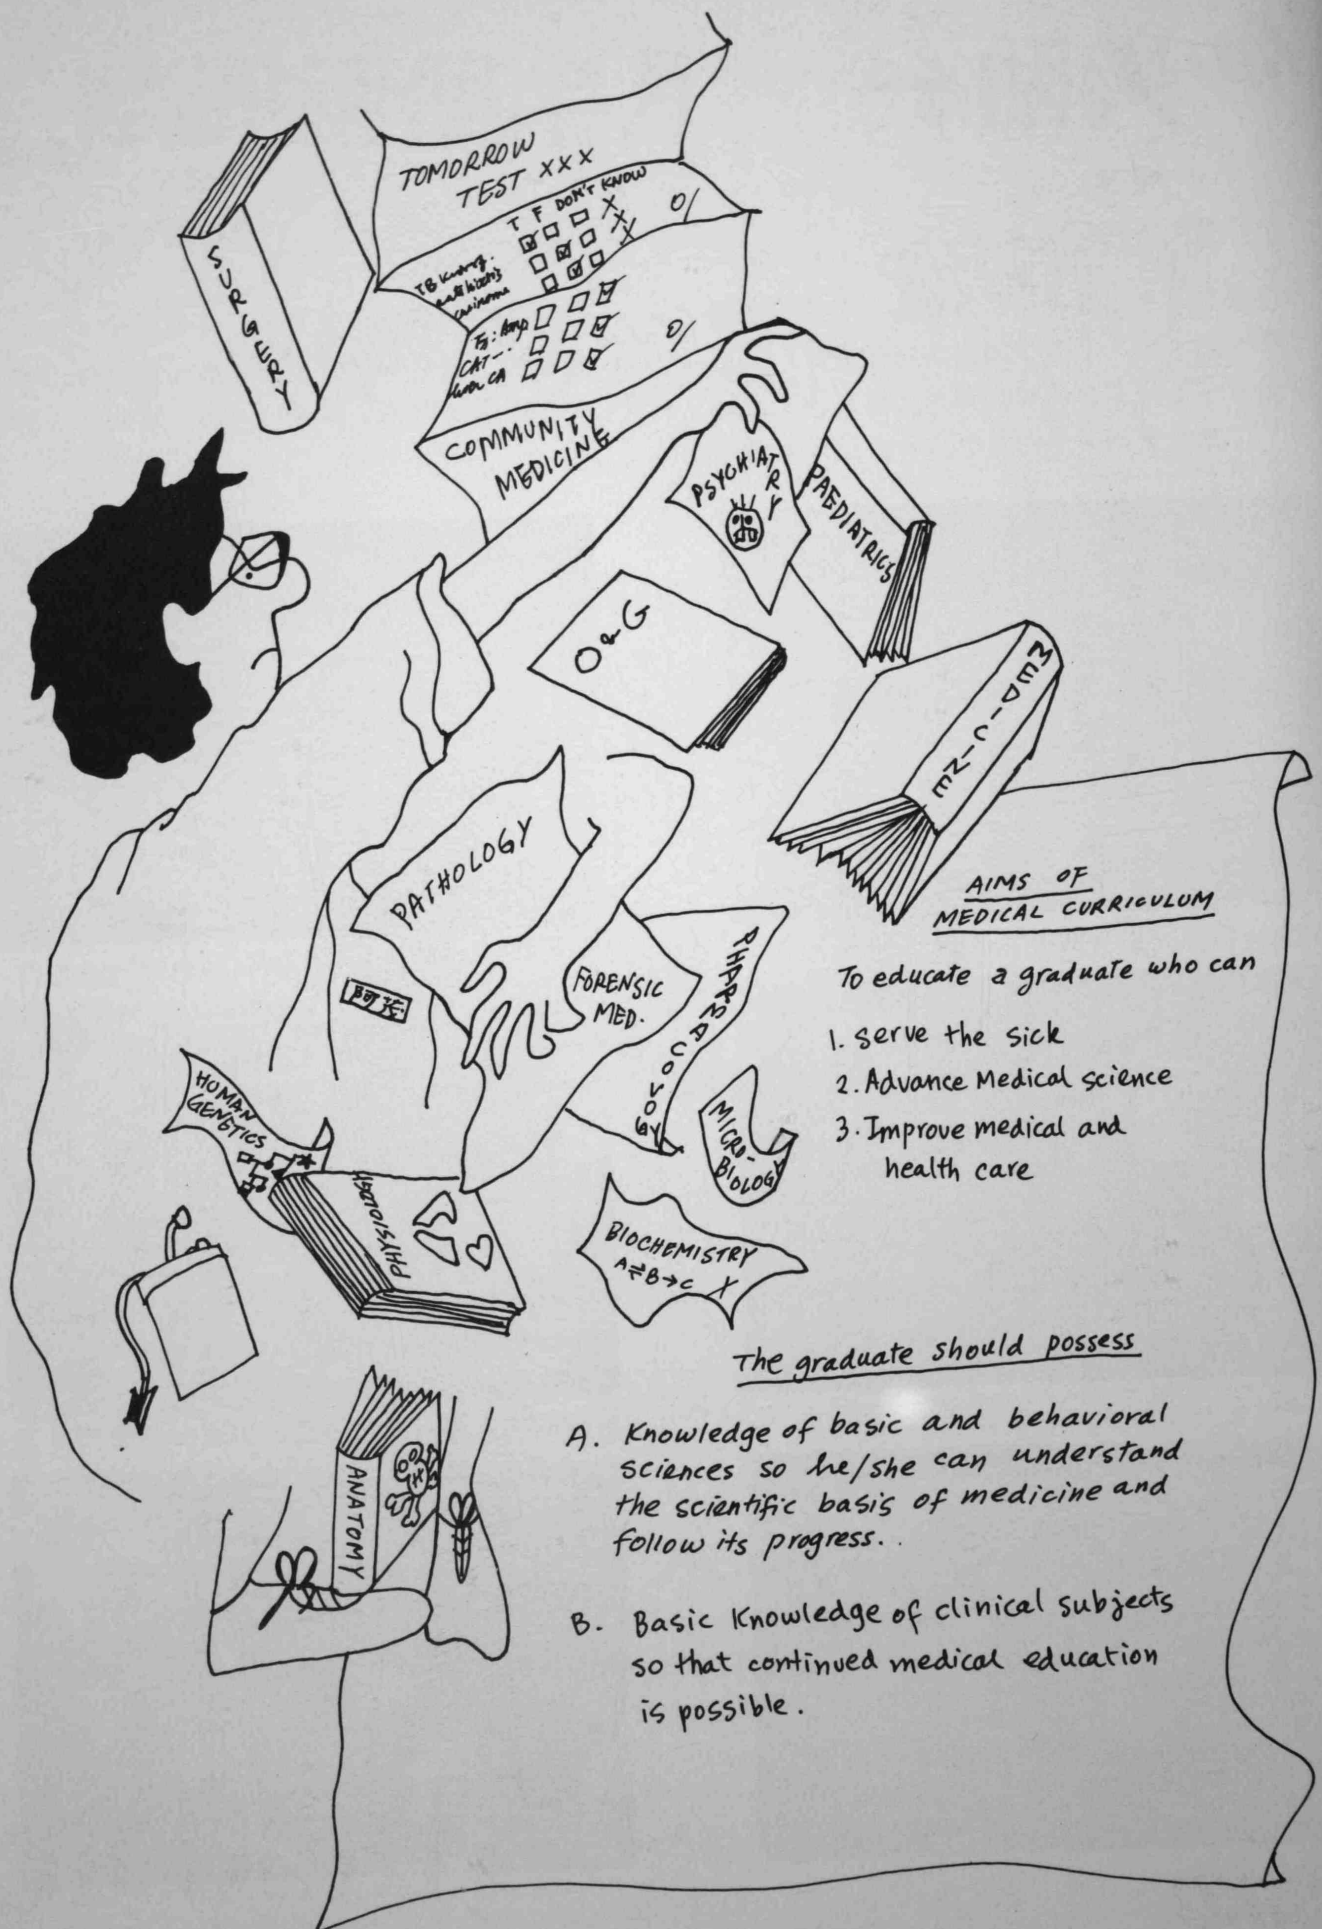 TOMORROW
TEST XXX
T F DON'T KNOW
X
X
X
0/
CAT--
CA
0/
SURGERY
COMMUNITY
MEDICINE
PSYCHIATRY
PAEDIATRICS
O & G
MEDICINE
PATHOLOGY
FORENSIC
MED.
PHARMACOLOGY
MICRO-
BIOLOGY
HUMAN
GENETICS
PHYSIOLOGY
BIOCHEMISTRY
A⇌B→C X
ANATOMY
AIMS OF
MEDICAL CURRICULUM
To educate a graduate who can
1. serve the sick
2. Advance Medical science
3. Improve medical and
health care
The graduate should possess
A. Knowledge of basic and behavioral
sciences so he/she can understand
the scientific basis of medicine and
follow its progress..
B. Basic Knowledge of clinical subjects
so that continued medical education
is possible.